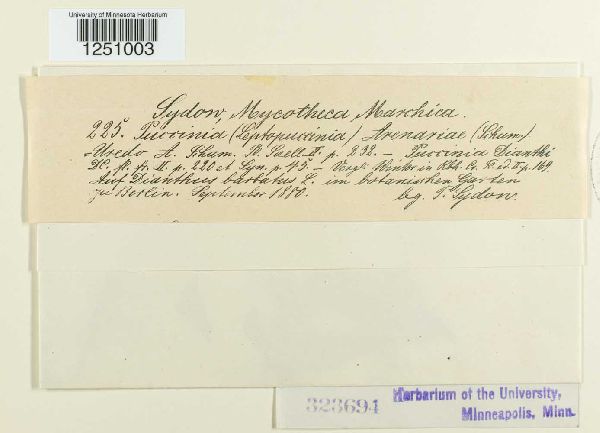 University of Minnesota Herbarium
1251003
Sydow, Mycotheca Marchica.
225. Puccinia (Leptopuccinia) Arenariae (Schum.)
Uredo A. Schum. Pl. Saell. II. p. 232. — Puccinia Dianthi
DC. fl. fr. II. p. 222 et Syn. p. 45. — Vergl. Winter in Rbh. p. 169.
Auf Dianthus barbatus L. im botanischen Garten
zu Berlin. September 1880. leg. P. Sydow.
323694
Herbarium of the University,
Minneapolis, Minn.